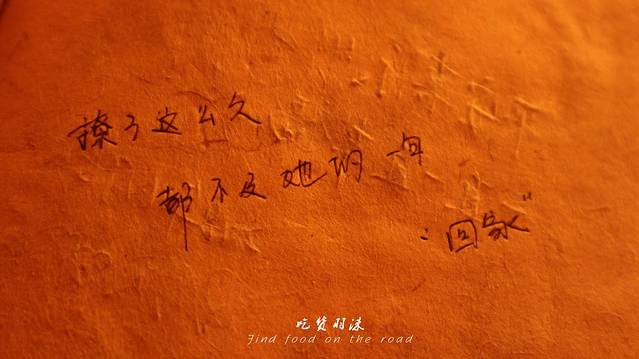 撩了这么久
都不及她的一句
：回家”
吃货羽溱
Find food on the road